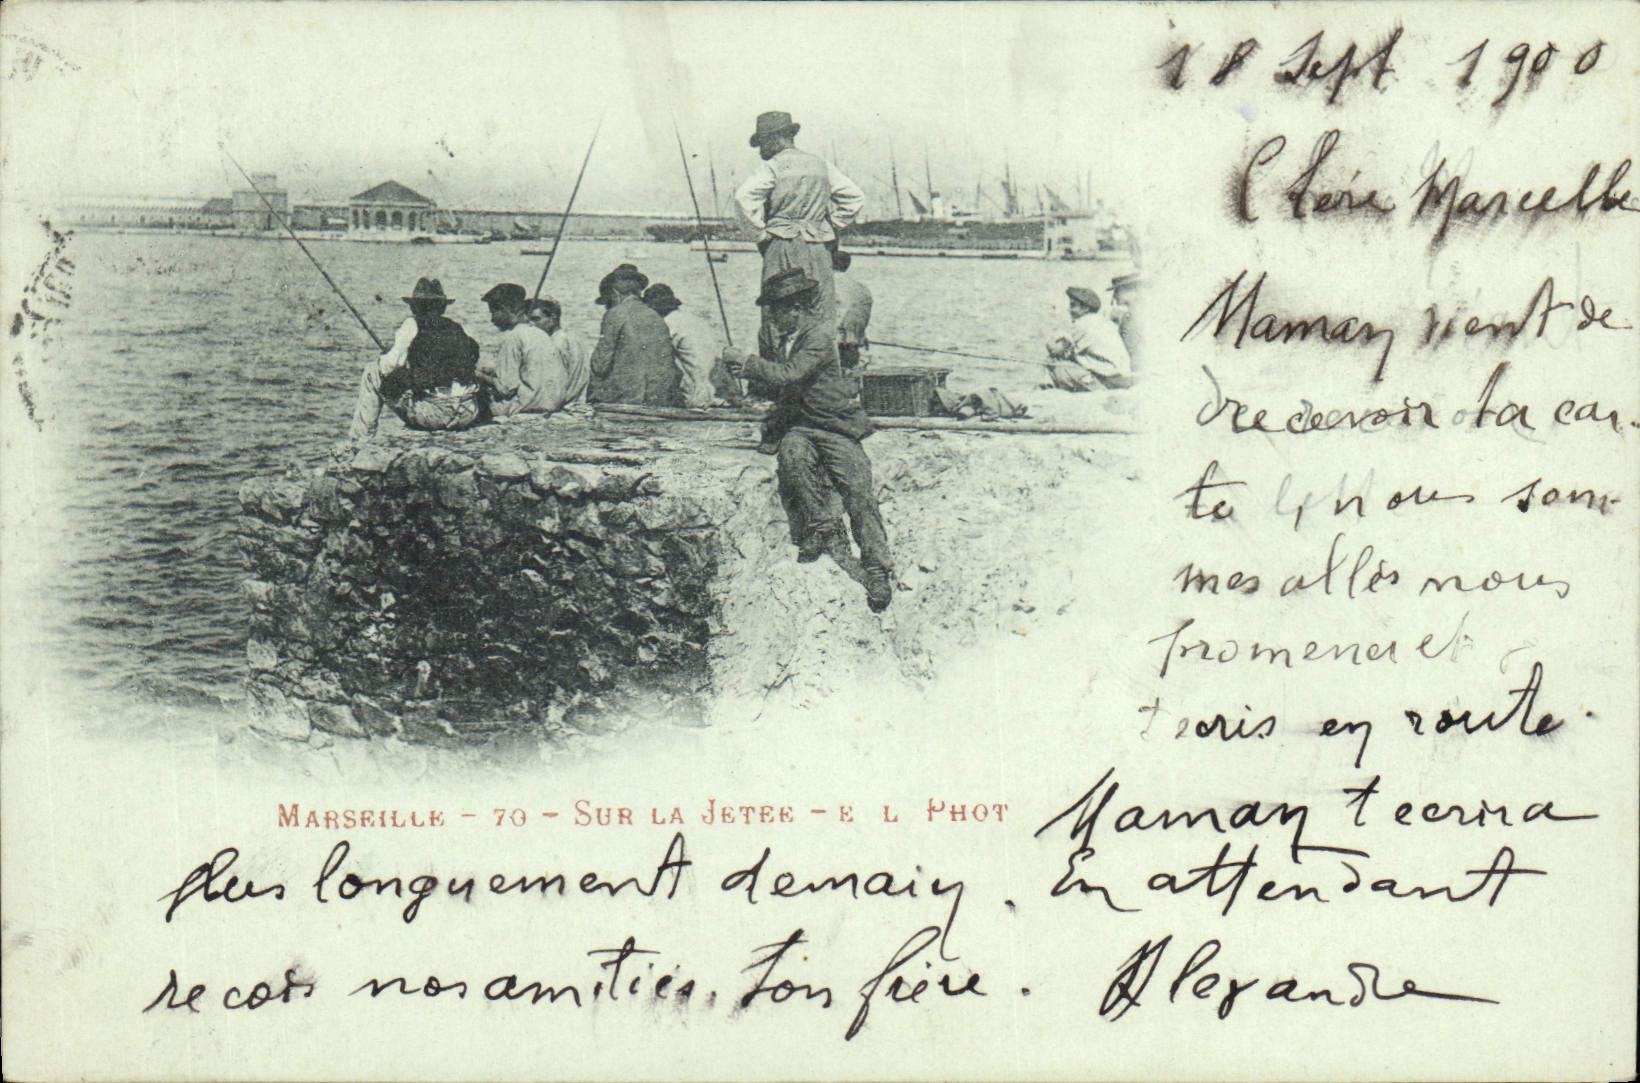 18 Sept 1900
Chère Marcelle
Maman vient de
recevoir ta car-
te, nous som-
mes allés nous
promener et
t ecris en route.
MARSEILLE - 70 - SUR LA JETEE - E L PHOT
Maman t ecrira
plus longuement demain. En attendant
recois nos amitiés. Ton frère. Alexandre